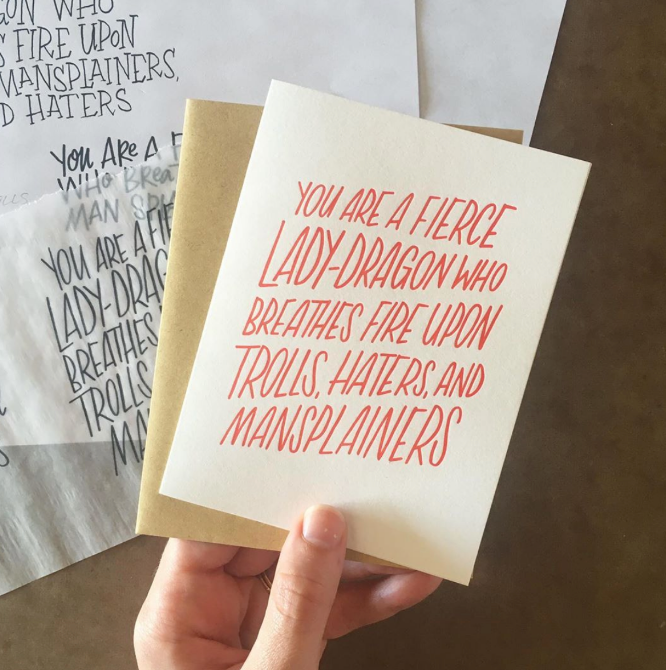 GON WHO
FIRE UPON
MANSPLAINERS,
D HATERS
YOU ARE A F
WHO BREA
MAN SP
YOU ARE A FIE
LADY-DRAG
BREATHES
TROLLS
MA
YOU ARE A FIERCE
LADY-DRAGON WHO
BREATHES FIRE UPON
TROLLS, HATERS, AND
MANSPLAINERS